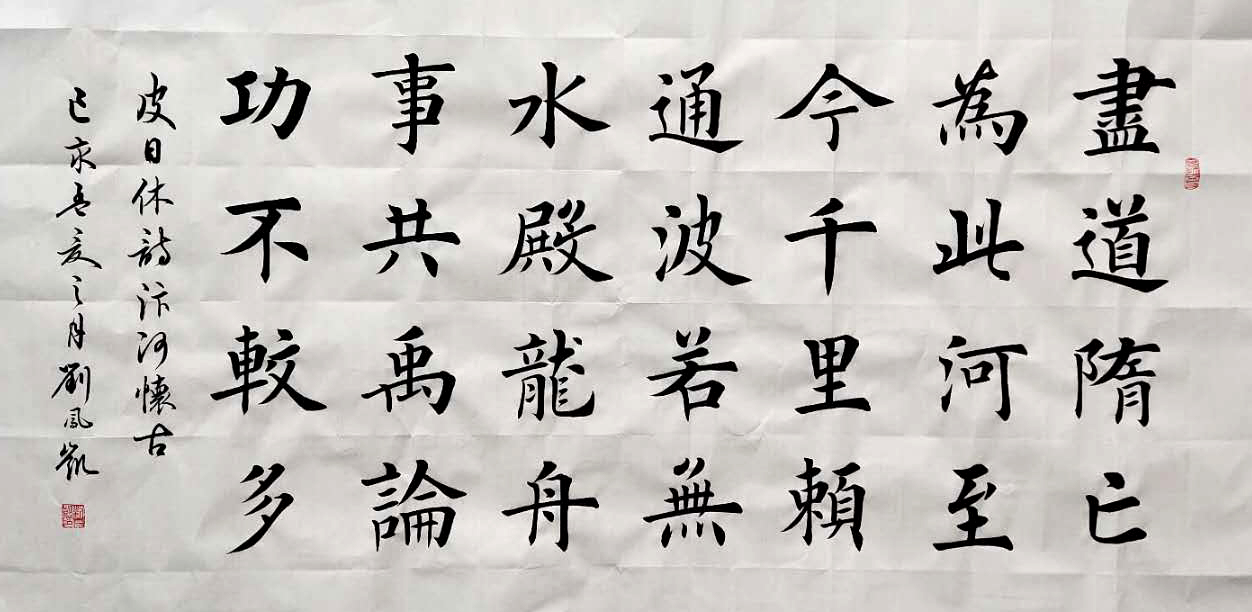 盡道隋亡
為此河至
今千里賴
通波若無
水殿龍舟
事共禹論
功不較多
皮日休詩汴河懷古
之月劉風凱